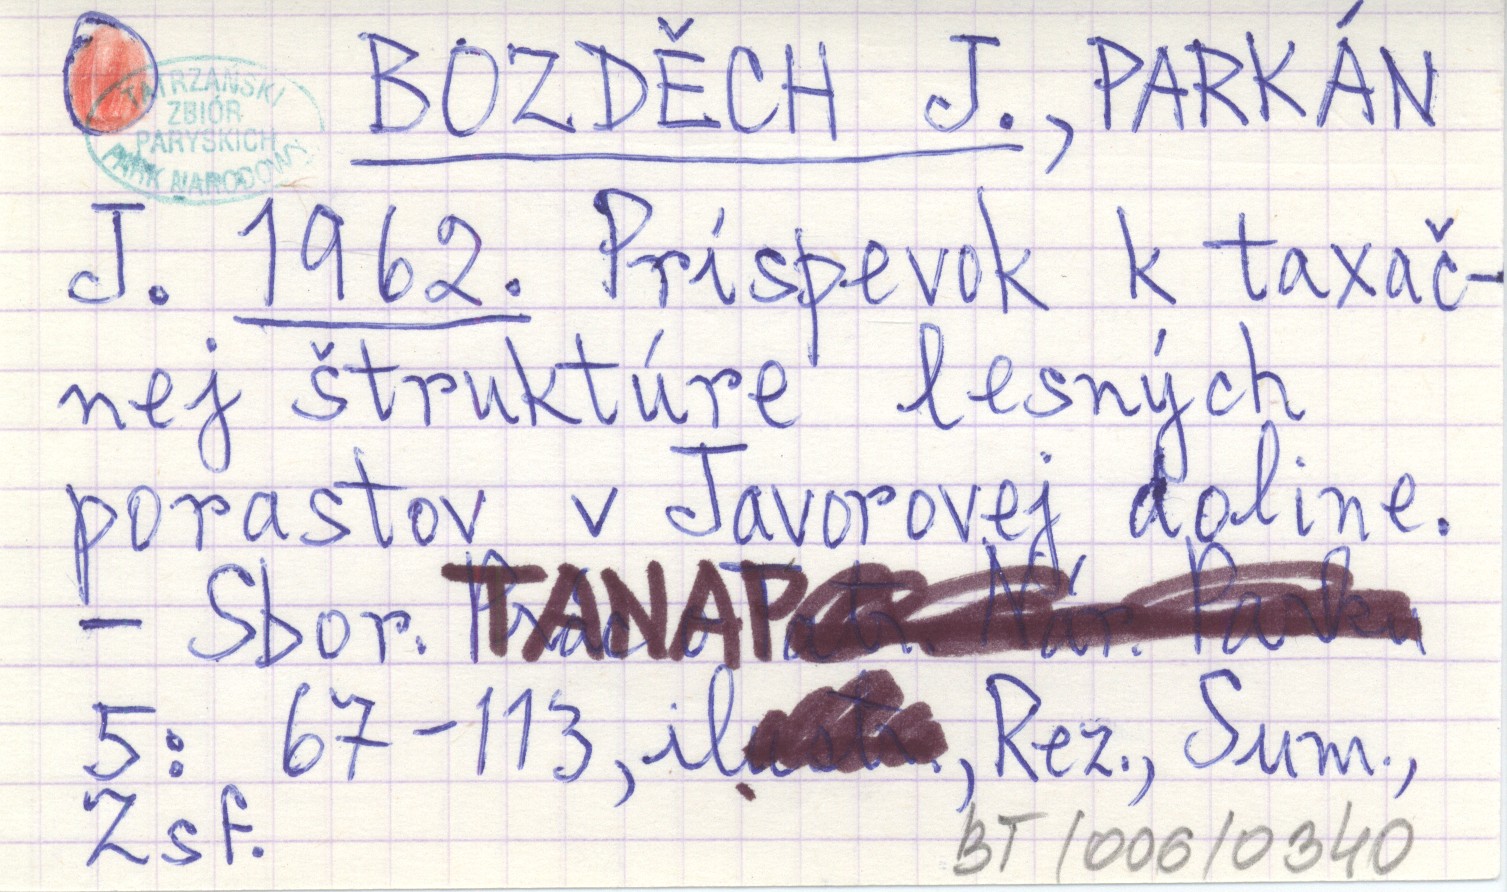 TATRZAŃSKI
ZBIÓR
PARYSKICH
PARK NARODOWY
BOZDĚCH J., PARKÁN
J. 1962. Príspevok k taxač-
nej štruktúre lesných
porastov v Javorovej doline.
- Sbor. TANAP
5: 67-113, il., Rez., Sum.,
Zsf.
BT/006/0340